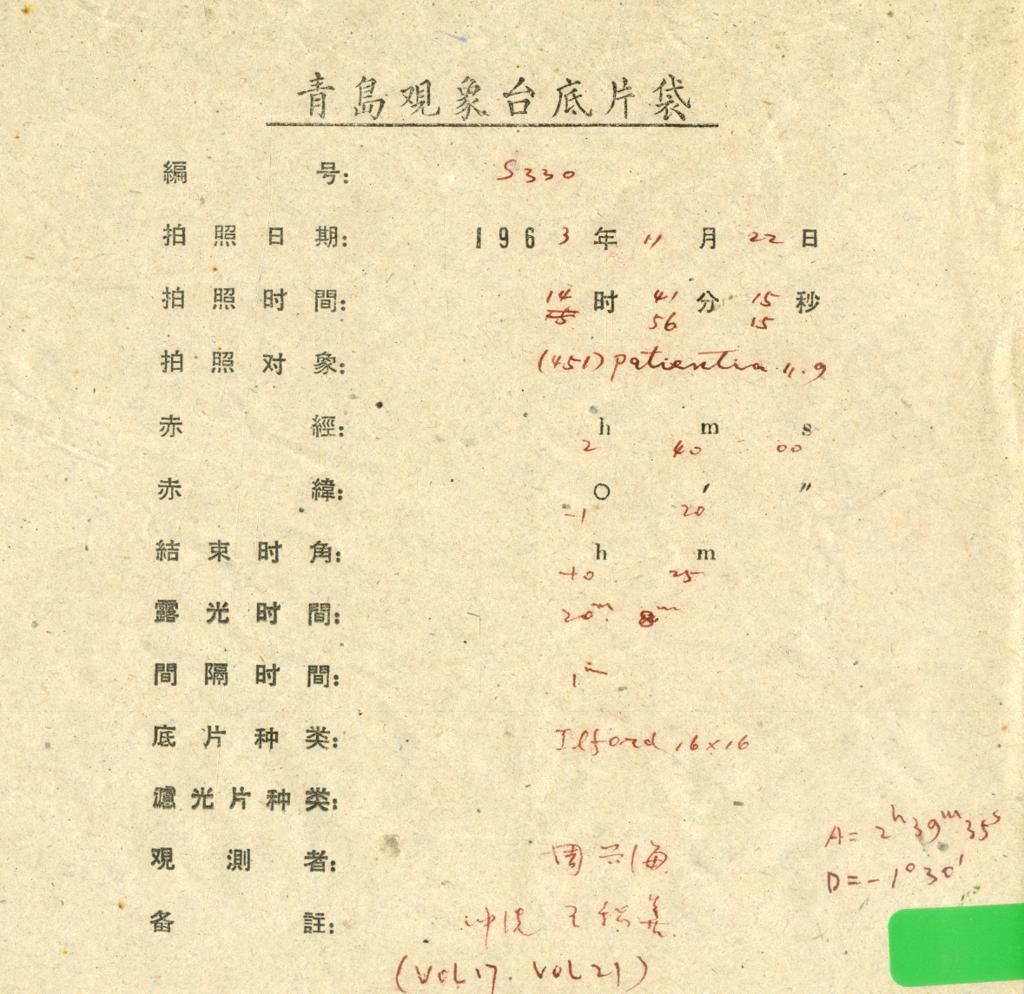 青島观象台底片袋
編号: S330
拍照日期: 1963年11月22日
拍照时間: 14时41分15秒
56 15
拍照对象: (451) patientia 11.9
赤經: h m s
2 40 00
赤緯: ○ ′ ″
-1 20
結束时角: h m
+0 25
露光时間: 20m. 8m
間隔时間: 1m
底片种类: Ilford 16×16
濾光片种类:
观測者: 周兴海
A= 2h39m35s
D=-1°30′
备註: 冲洗 王
(VOL17. VOL21)